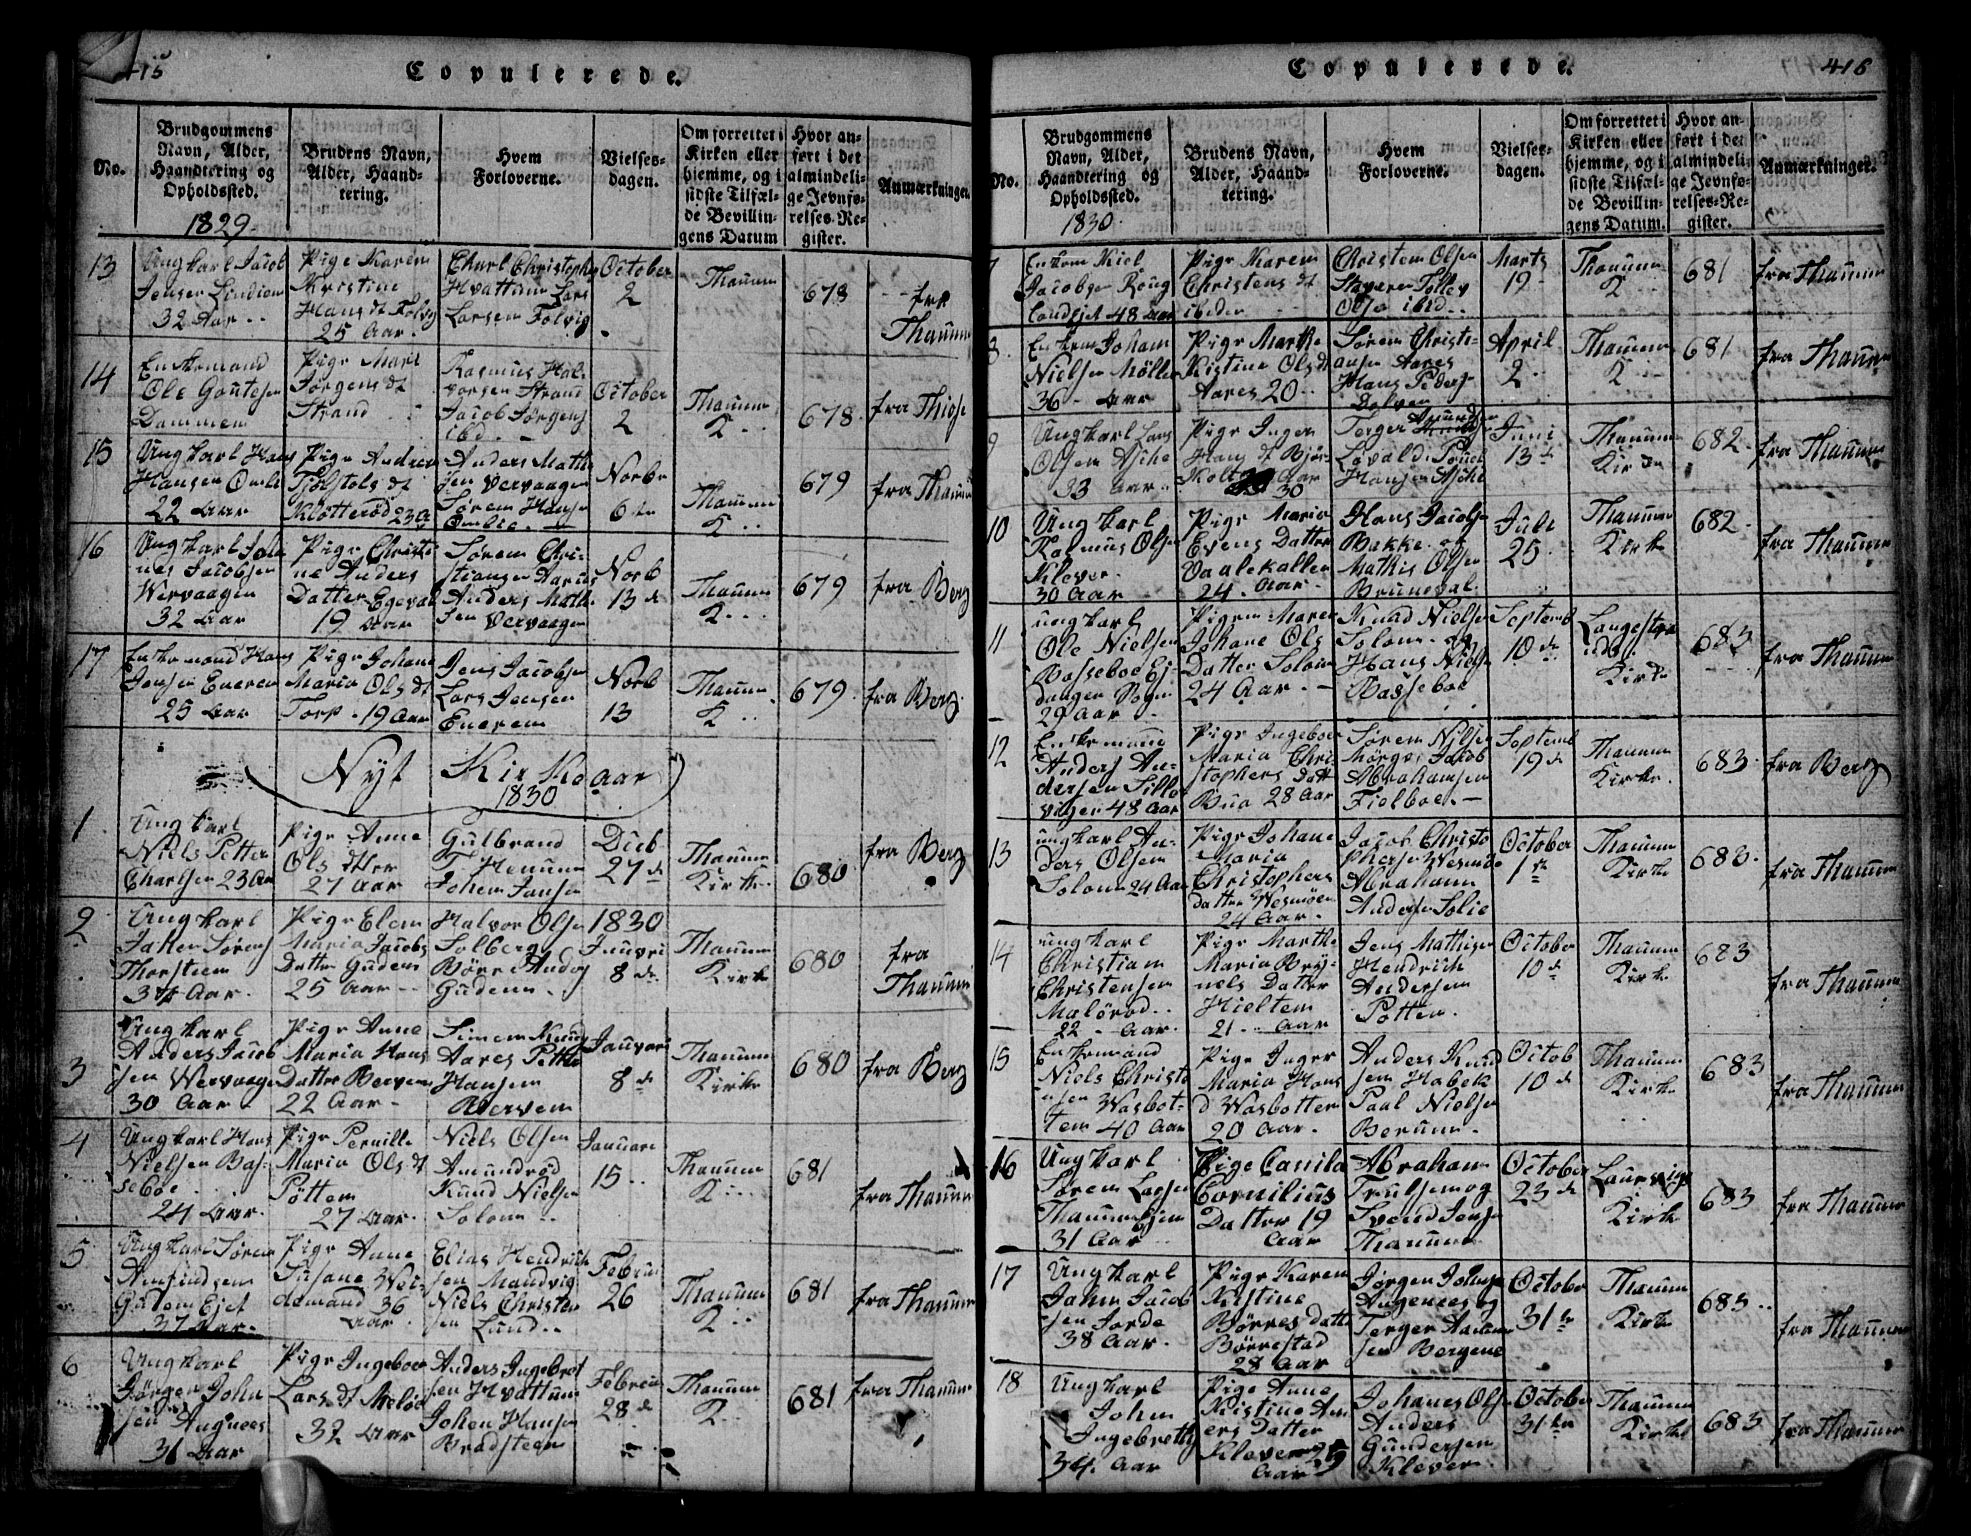 415
Copulerede.
No.
Brudgommens
Navn, Alder,
Haandtering og
Opholdssted.
1829
Brudens Navn,
Alder, Haand-
tering.
Hvem
Forloverne.
Vielses-
dagen.
Om forrettet i
Kirken eller
hjemme, og i
sidste Tilfæl-
de Bevillin-
gens Datum
Hvor an-
ført i det
almindeli-
ge Jevnfø-
relses-Re-
gister.
Anmærkninger.
13
Ungkarl Jacob
Jensen Lindiem
32 Aar
Pige Karen
Kristine
Hans dt Folvig
25 Aar
Charl Christophe
Hvattum Lars
Larsen Folvig
October
2
Thanum
678
fra
Thanum
14
Enkemand
Ole Goutesen
Dammen
Pige Mari
Jørgens dt
Strand
Rasmus Hal-
vorsen Strand
Jacob Jørgens
ibd.
October
2
Thanum
K
678
fra Thiøse
15
Ungkarl Hans
Hansen Omli
22 Aar
Pige Andrea
Tjøstols dt
Kløtterød 23 A
Anders Math
sen Vervaagen
Sørem Hanse
Omlie
Novbr
6te
Thanum
K
679
fra Thanum
16
Ungkarl Joha
nes Jacobsen
Wervaagen
32 Aar
Pige Christi
ne Anders
Datter Egeval
19 Aar
Sørem Chri-
stiansen Aaris
Anders Math
sen Vervaagen
Novb
13 d
Thanum
K
679
fra Berg
17
Enkemand Hans
Jensen Eneren
25 Aar
Pige Johane
Maria Ols dt
Torp 19 Aar
Jens Jacobse
Lars Jensen
Enerem
Novb
13
Thanum
K
679
fra Berg
Nyt Kirke aar
1830
1
Ungkarl
Niels Petter
Charlsen 23 Aar
Pige Anne
Ols dtter
27 Aar
Gulbrand
T Henum
Johem Janse
Dieb
27 d
Thanum
Kirke
680
fra Berg
2
Ungkarl
Jaken Sørens
Thorstein
34 Aar
Pige Elen
Maria Jacobs
Datter Gudem
25 Aar
Halvor Olse
Solberg
Børre Anders
Gudem
1830
Januvri
8 de
Thanum
Kirke
680
fra
Thanum
3
Ungkarl
Anders Jacob
sen Wervaage
30 Aar
Pige Anne
Maria Hans
Datter Bervem
22 Aar
Simem Knud
Aares Pette
Hansen
Bervem
Januvari
8 de
Thanum
Kirke
680
fra Berg
4
Ungkarl Hans
Nielsen Bas-
seboe
24 Aar
Pige Pernille
Maria Ols dt
Pøttem
27 Aar
Niels Olsen
Amundrød
Knud Nielse
Solum
Januari
15
Thanum
K
681
fra Thanum
5
Ungkarl Sørem
Amfindsem
Gulom Ejet
37 Aar
Pige Anne
Susane Wei-
demand 36
Aar
Elias Hendrich
sen Mandvig
Niels Christen
sen Lund
Februa
26
Thanum
K
681
fra Thanum
6
Ungkarl
Jørgen John
sen Augnees
31 Aar
Pige Ingeboer
Lars dt Meløe
32 Aar
Anders Ingebret
sen Hvattum
Johen Hanse
Bradsteen
Februa
28 de
Thanum
K
681
fra Thanum
416
Copulerede.
No.
Brudgommens
Navn, Alder,
Haandtering og
Opholdssted.
1830
Brudens Navn,
Alder, Haand-
tering.
Hvem
Forloverne.
Vielses-
dagen.
Om forrettet i
Kirken eller
hjemme, og i
sidste Tilfæl-
de Bevillin-
gens Datum.
Hvor an-
ført i det
almindeli-
ge Jevnfø-
relses-Re-
gister.
Anmærkninger.
7
Enkem Niel
Jacobsen Roug
land Ejet 48 Aar
Pige Karen
Christens dt
ibidem
Christem Olsen
Stavarn Tollev
Olse ibid
Marts
19
Thanum
K
681
fra Thanum
8
Enkem Joham
Nielsen Møller
36 Aar
Pige Marthe
Kistine Ols dt
Aares 20
Sørem Christi-
ansen Aares
Hans Peders
Dolven
April
2
Thanum
K
681
fra Thanum
9
Ungkarl Lars
Olsen Aske
33 Aar
Pige Ingen
Hans dt Bjør-
kolt Aar
30
Terger Amundsen
Løvald Pouel
Hansen Aske
Juni
13 d
Thanum
Kirke
682
fra Thanum
10
Ungkarl
Rasmus Olse
Klever
30 Aar
Pige Maria
Evens Datter
Vaalekallen
24 Aar
Hans Jacobse
Bakke og
Mathis Olsen
Brunsval
Juli
25
Thanum
Kirke
682
fra Thanum
11
ungkarl
Ole Nielsen
Basseboe Ej-
danger Sogn
29 Aar
Pigen Maren
Johane Ols
Datter Solom
24 Aar
Knud Nielsen
Solom og
Hans Nielse
Basseboe
Septemb
10 de
Langestra
nds
Kirke
683
fra Thanum
12
Enkemand
Anders An-
dersen Sillo
vigen 48 Aar
Pige Ingeboer
Maria Chri
stophers Datt
Bua 28 Aar
Sørem Nilse
Mørges Jacob
Abrahamsen
Fielboe
Septemb
19 de
Thanum
Kirke
683
fra Berg
13
ungkarl An-
ders Olsem
Solom 24 Aar
Pige Johane
Maria
Christophers
Datter Wesmøen
24 Aar
Jacob Christo
phersen Wesmøe
Abraham
Andersen Solie
October
1ste
Thanum
Kirke
683
fra Thanum
14
ungkarl
Christiam
Christensen
Malerød
22 Aar
Pige Marthe
Maria Bry-
nels Datter
Hieltem
21 Aar
Jens Mathisen
Hendrich
Andersem
Pøttem
October
10 de
Thanum
Kirke
683
fra Thanum
15
Enkemand
Niels Christe
nsen Wasbot-
tem 40 Aar
Pige Inger
Maria Hans
d Wasbotten
20 Aar
Anders Knud
sem Habek
Paal Nielsen
Berum
Octob
10 d
Thanum
Kirke
683
fra Thanum
16
Ungkarl
Sørem Larsen
Thanum Ejem
31 Aar
Pige Canila
Cornilius
Datter 19
Aar
Abraham
Trulsem og
Svend Jense
Thanum
October
23 de
Laurvigs
Kirke
683
fra Thanum
17
Ungkarl
Johm Jacob
sen Jorde
38 Aar
Pige Karen
Kistine
Børres datte
Børrestad
28 Aar
Jørgen Johnse
Augenees og
Terger Aanun
sen Bergene
October
31te
Thanum
Kirke
683
fra Thanum
18
Ungkarl
Johm
Ingebrethse
34 Aar
Pige Anne
Kristine An
ers Datter
Kleven 25
Aar
Johanes Olse
Anders
Gundersen
Klever
October
31te
Thanum
Kirke
683
fra Thanum